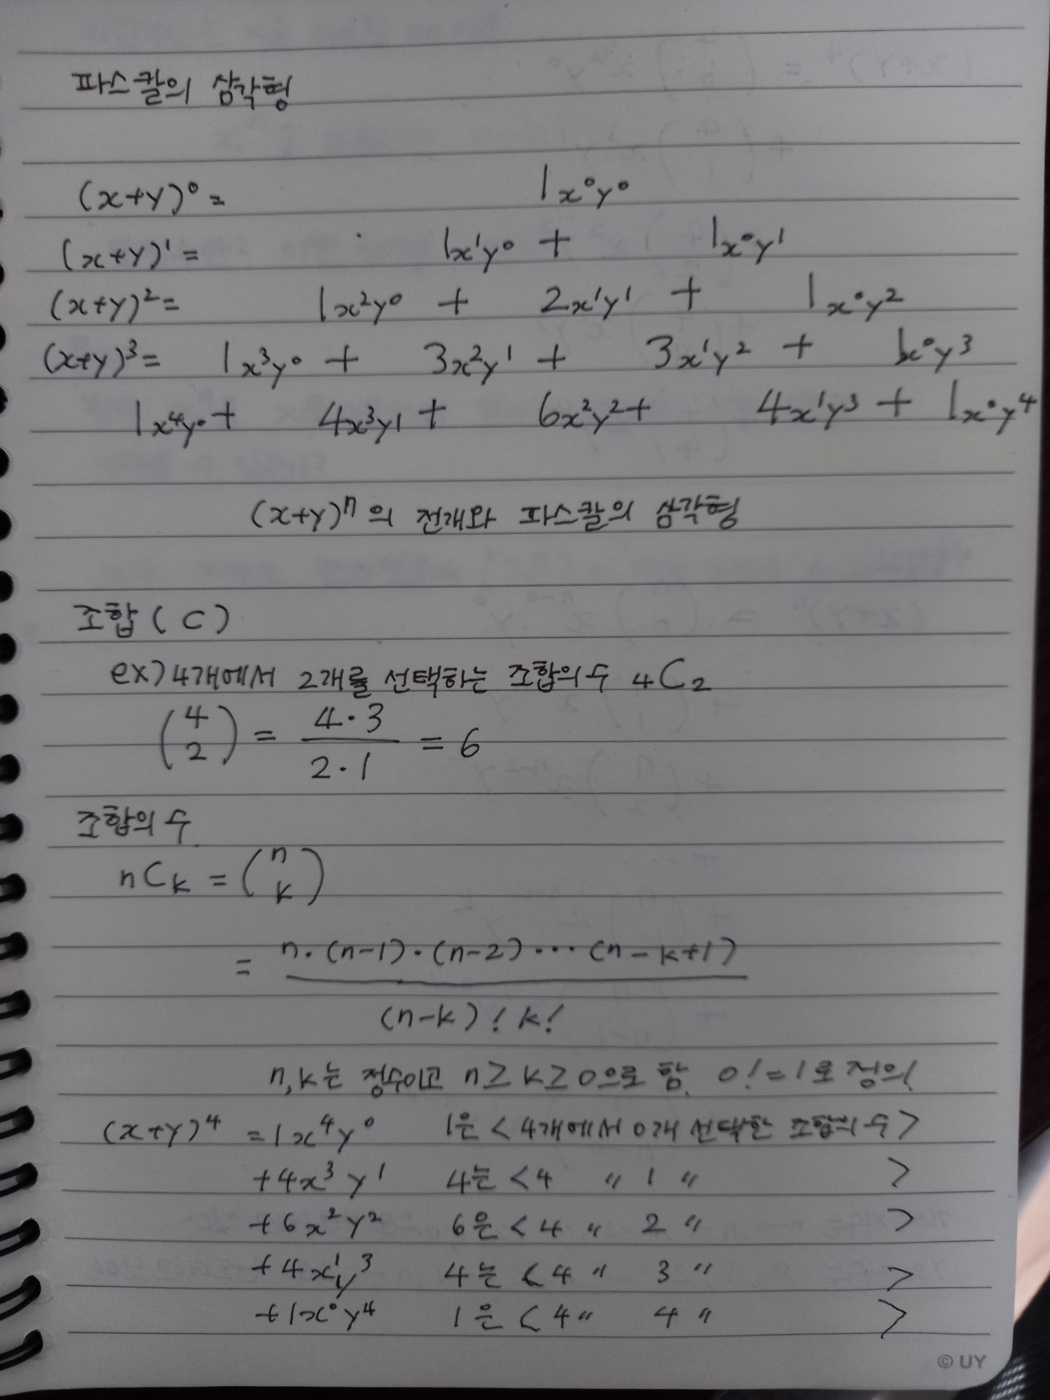 파스칼의 삼각형
(x+y)⁰= 1x⁰y⁰
(x+y)¹= 1x¹y⁰ + 1x⁰y¹
(x+y)²= 1x²y⁰ + 2x¹y¹ + 1x⁰y²
(x+y)³= 1x³y⁰ + 3x²y¹ + 3x¹y² + 1x⁰y³
1x⁴y⁰ + 4x³y¹ + 6x²y² + 4x¹y³ + 1x⁰y⁴
(x+y)ⁿ의 전개와 파스칼의 삼각형
조합(C)
ex) 4개에서 2개를 선택하는 조합의 수 ₄C₂
(4 2) = 4·3 / 2·1 = 6
조합의 수
nCₖ = (n k)
= n·(n-1)·(n-2)···(n-k+1) / (n-k)! k!
n,k는 정수이고 n≥k≥0으로 함. 0!=1로 정의
(x+y)⁴ =1x⁴y⁰ 1은 <4개에서 0개 선택한 조합의 수>
+4x³y¹ 4는 <4 〃 1 〃 >
+6x²y² 6은 <4 〃 2 〃 >
+4x¹y³ 4는 <4 〃 3 〃 >
+1x⁰y⁴ 1은 <4 〃 4 〃 >
© UY